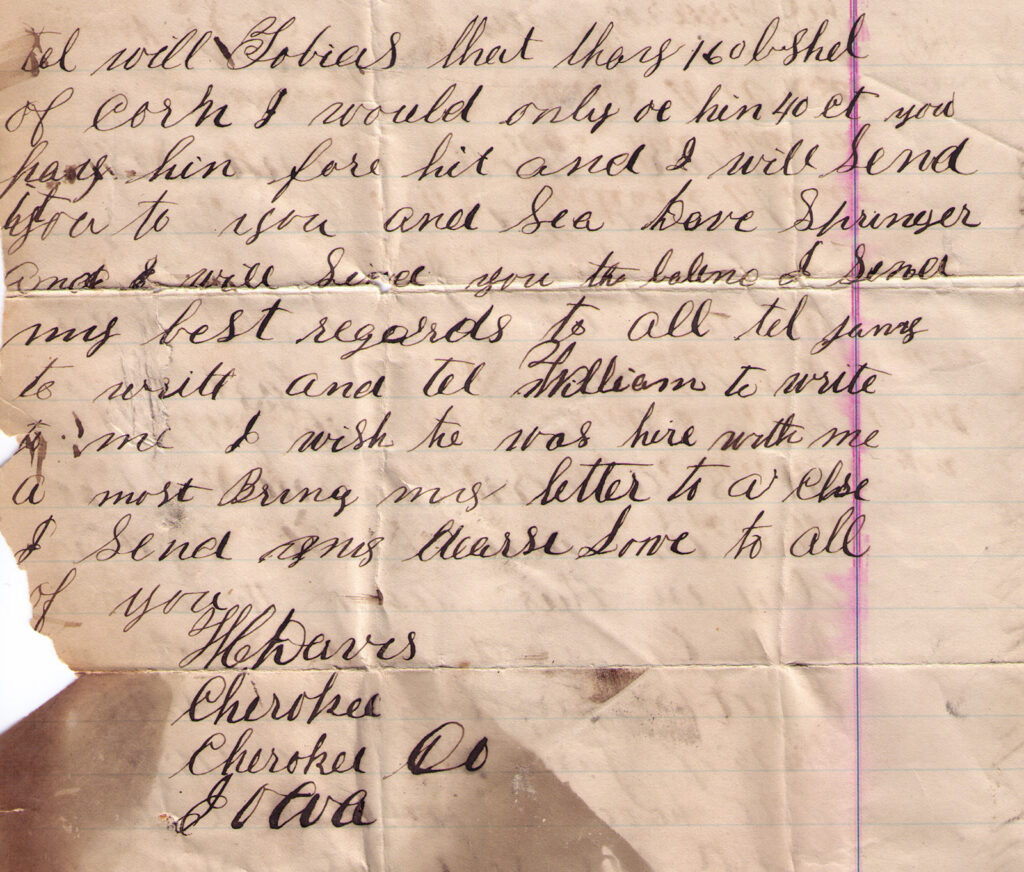 tel will Tobias that thay 160 bshel
of corn I would only oe hin 40 ct you
pay hin fore hit and I will Send
to you and Sea Dave Springer
and I will Send you the I Send
my best regards to all tel
to writt and tel William to write
to me I wish he was hire with me
a most Bring my letter to a Clse
I Send my dearse Love to all
of you
H C Davis
Cherokee
Cherokee Co
Iowa